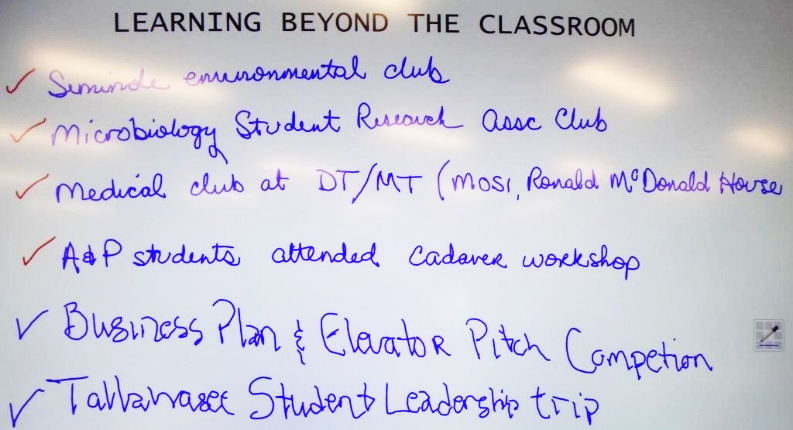 LEARNING BEYOND THE CLASSROOM
✓ Seminole environmental club
✓ Microbiology Student Research Assc Club
✓ Medical club at DT/MT (MOSI, Ronald McDonald House
✓ A&P students attended cadaver workshop
✓ Business Plan & Elevator Pitch Competion
✓ Tallahassee Student Leadership trip